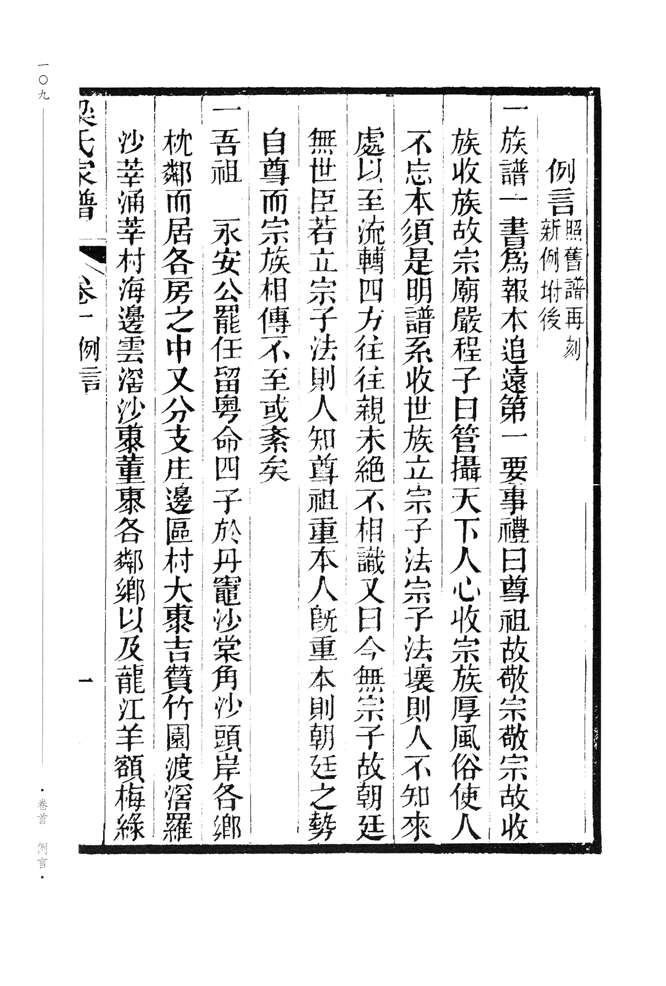 例言照舊譜再刻
新例坿後
一族譜一書爲報本追遠第一要事禮曰尊祖故敬宗敬宗故收
族收族故宗廟嚴程子曰管攝天下人心收宗族厚風俗使人
不忘本須是明譜系收世族立宗子法宗子法壞則人不知來
處以至流轉四方往往親未絕不相識又曰今無宗子故朝廷
無世臣若立宗子法則人知尊祖重本人既重本則朝廷之勢
自尊而宗族相傳不至或紊矣
一吾祖 永安公罷任留粵命四子於丹竈沙棠角沙頭岸各鄉
枕鄰而居各房之中又分支庄邊區村大㮔吉贊竹園渡滘羅
沙莘涌莘村海邊雲滘沙㮔董㮔各鄰鄉以及龍江羊額梅綠
梁氏家譜 卷十例言 一
一〇九
·卷首 例言·